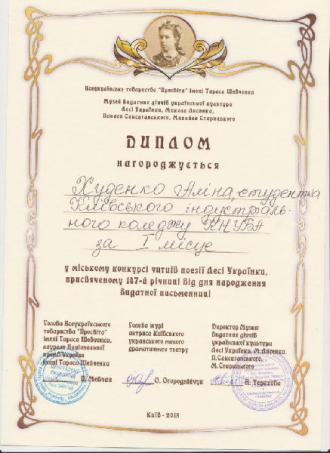 Всеукраїнське товариство "Просвіта" імені Тараса Шевченка
Музей видатних діячів української культури
Лесі Українки, Миколи Лисенка,
Панаса Саксаганського, Михайла Старицького
ДИПЛОМ
нагороджується
Худенко Аліна, студентка
Київського індустріаль-
ного коледжу КНУБА
за І місце
у міському конкурсі читців поезії Лесі Українки,
присвяченому 147-й річниці від дня народження
видатної письменниці
Голова Всеукраїнського
товариства "Просвіта"
імені Тараса Шевченка,
лауреат Національної
премії України
імені Тараса Шевченка
П. Мовчан
Голова журі
актриса Київського
українського
драматичного театру
О. Огородничук
Директор Музею
видатних діячів
української культури
Лесі Українки, М. Лисенка,
П. Саксаганського,
М. Старицького
Н. Терехова
Київ - 2018